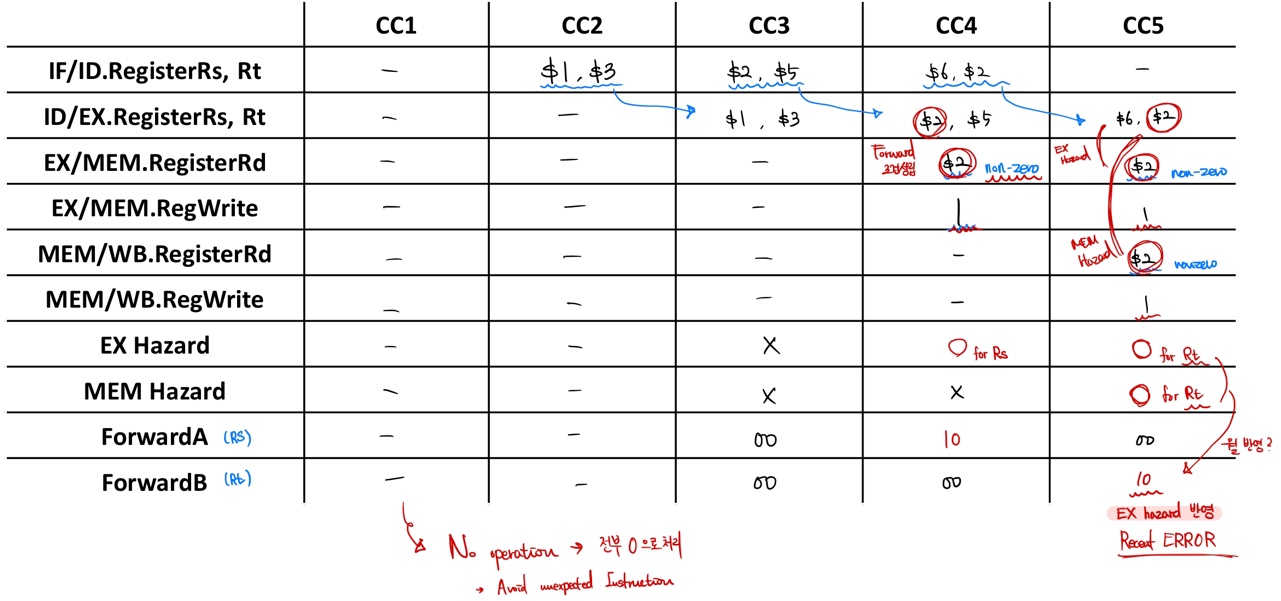 CC1 CC2 CC3 CC4 CC5
IF/ID.RegisterRs, Rt – $1, $3 $2, $5 $6, $2 –
ID/EX.RegisterRs, Rt – – $1, $3 $2, $5 $6, $2
EX/MEM.RegisterRd – – – Forward 조건성립 $2 non-zero EX Hazard $2 non-zero
EX/MEM.RegWrite – – – 1 1
MEM/WB.RegisterRd – – – – MEM Hazard $2 nonzero
MEM/WB.RegWrite – – – – 1
EX Hazard – – X O for Rs O for Rt
MEM Hazard – – X X O for Rt
ForwardA (RS) – – 00 10 00 뭘 반영?
ForwardB (Rt) – – 00 00 10
EX hazard 반영
No operation → 전부 0으로 처리
Recent ERROR
→ Avoid unexpected Instruction